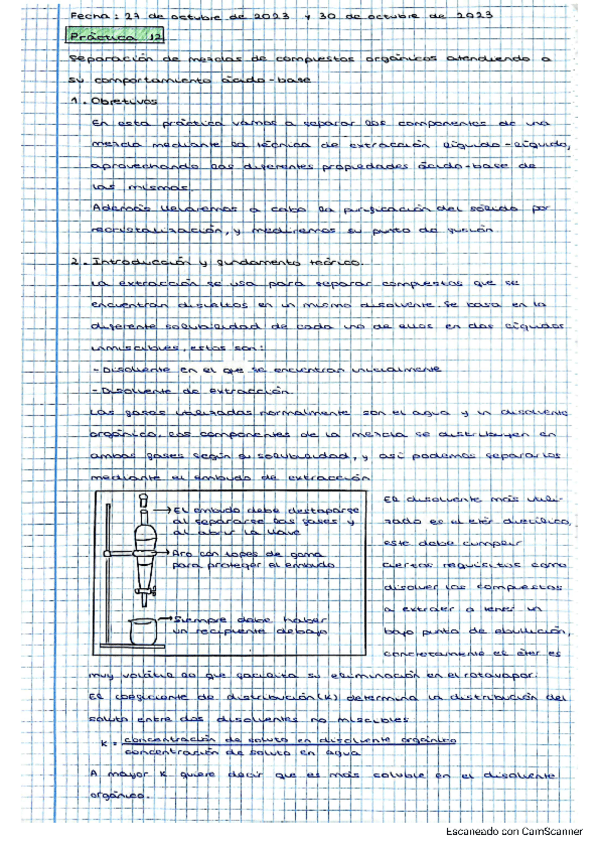 Fecha: 27 de octubre de 2023 y 30 de octubre de 2023
Práctica 12
Separación de mezclas de compuestos orgánicos atendiendo a
su comportamiento ácido-base
1. Objetivos
En esta práctica vamos a separar los componentes de una
mezcla mediante la técnica de extracción líquido-líquido,
aprovechando las diferentes propiedades ácido-base de
las mismas.
Además llevaremos a cabo la purificación del sólido por
recristalización, y mediremos su punto de fusión.
2. Introducción y fundamento teórico.
La extracción se usa para separar compuestos que se
encuentran disueltos en un mismo disolvente. Se basa en la
diferente solubilidad de cada uno de ellos en dos líquidos
inmiscibles, estos son:
- Disolvente en el que se encuentran inicialmente
- Disolvente de extracción.
Las fases utilizadas normalmente son el agua y un disolvente
orgánico. Los componentes de la mezcla se distribuyen en
ambas fases según su solubilidad, y así podemos separarlos
mediante el embudo de extracción
→ El embudo debe destaparse
al separarse las fases y
al abrir la llave
→ Aro con topes de goma
para proteger el embudo
→ Siempre debe haber
un recipiente debajo
El disolvente más utili-
zado es el éter dietílico,
este debe cumplir
ciertos requisitos como
disolver los compuestos
a extraer o tener un
bajo punto de ebullición,
concretamente el éter es
muy volátil lo que facilita su eliminación en el rotavapor.
El coeficiente de distribución (K) determina la distribución del
soluto entre dos disolventes no miscibles
K = concentración de soluto en disolvente orgánico
concentración de soluto en agua
A mayor K quiere decir que es más soluble en el disolvente
orgánico.
Escaneado con CamScanner